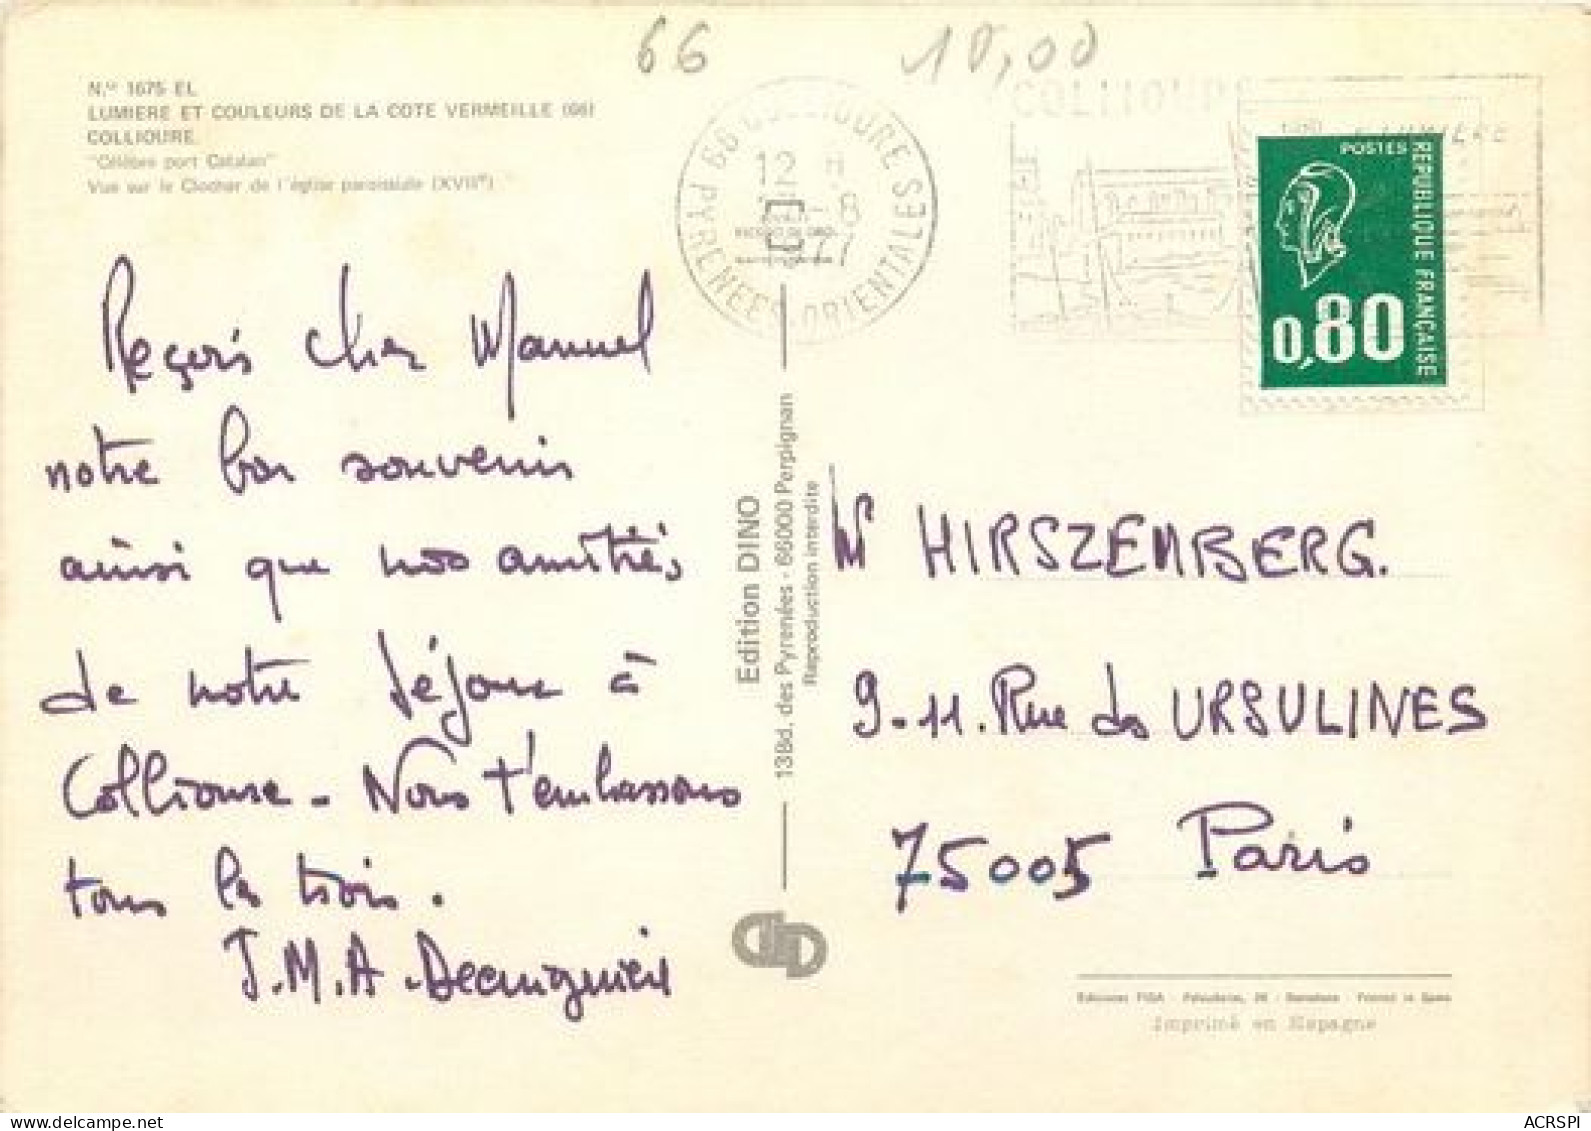 66 10,00
N.º 1675 EL
LUMIERE ET COULEURS DE LA COTE VERMEILLE (66)
COLLIOURE
"Célèbre port Catalan"
Vue sur le Clocher de l'église paroissiale (XVIIe)
66 COLLIOURE
PYRENEES ORIENTALES
12 H
-8
1977
COLLIOURE
LUMIERE
POSTES
REPUBLIQUE FRANÇAISE
0,80
Reçois cher Manuel
notre bon souvenir
ainsi que nos amitiés
de notre séjour à
Collioure - Nous t'embrassons
tous les trois.
J.M.A.
Edition DINO
13Bd. des Pyrenées - 66000 Perpignan
Reproduction interdite
Mr HIRSZENBERG.
9-11. Rue des URSULINES
75005 Paris
Ediciones FISA - Palaudarias, 26 - Barcelona - Printed in Spain
Imprimé en Espagne
ACRSPI